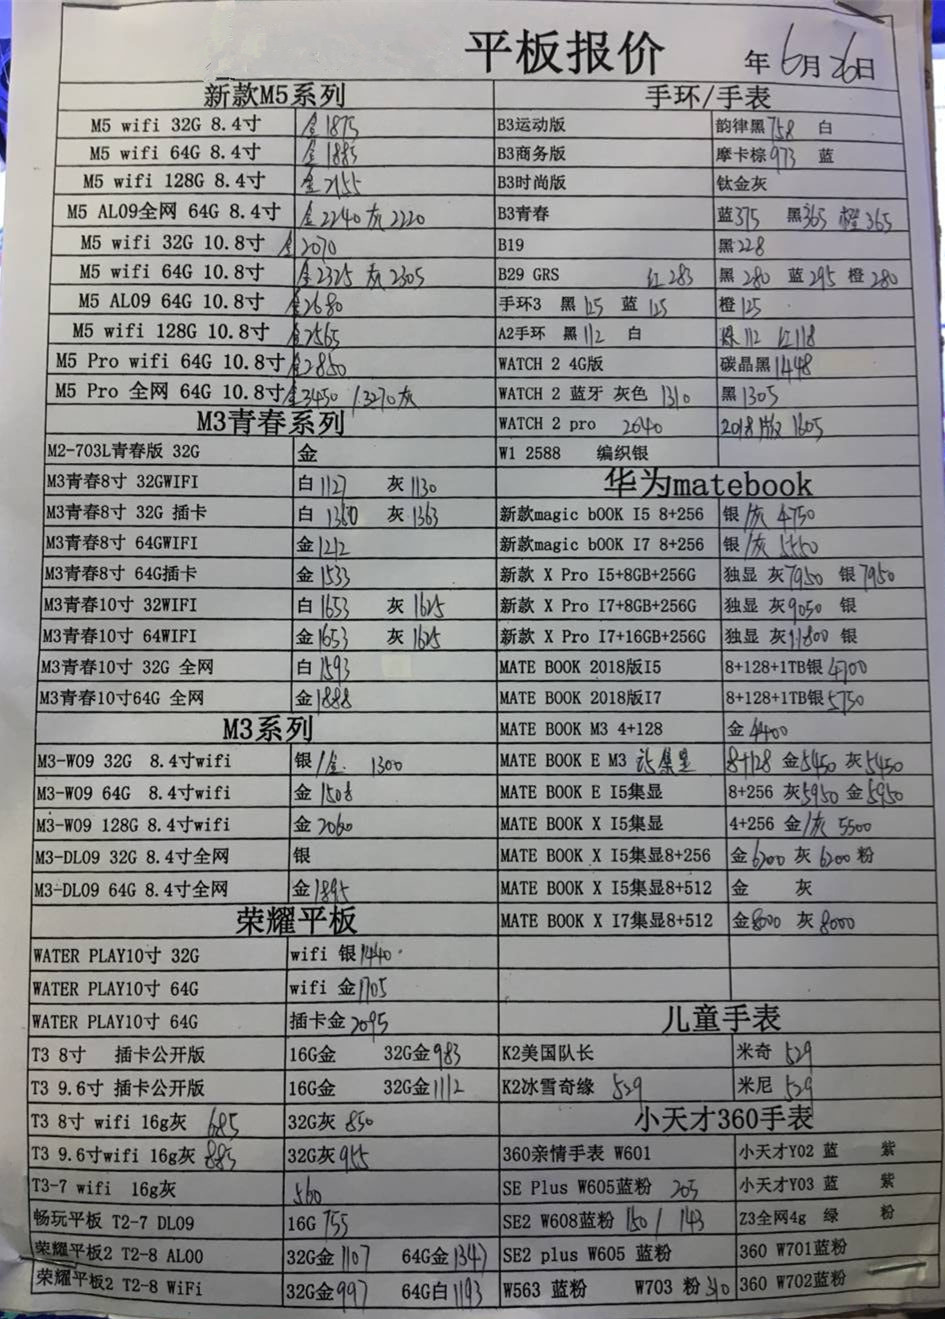 平板报价 年6月26日
新款M5系列
M5 wifi 32G 8.4寸 金1875
M5 wifi 64G 8.4寸 金1885
M5 wifi 128G 8.4寸 金2155
M5 AL09全网 64G 8.4寸 金2240 灰2220
M5 wifi 32G 10.8寸 金2070
M5 wifi 64G 10.8寸 金2325 灰2305
M5 AL09 64G 10.8寸 金2680
M5 wifi 128G 10.8寸 金2565
M5 Pro wifi 64G 10.8寸 金2850
M5 Pro 全网 64G 10.8寸 金3450 / 3270灰
M3青春系列
M2-703L青春版 32G 金
M3青春8寸 32GWIFI 白1127 灰1130
M3青春8寸 32G 插卡 白1360 灰1363
M3青春8寸 64GWIFI 金1212
M3青春8寸 64G插卡 金1533
M3青春10寸 32WIFI 白1653 灰1625
M3青春10寸 64WIFI 金1653 灰1625
M3青春10寸 32G 全网 白1593
M3青春10寸64G 全网 金1888
M3系列
M3-W09 32G 8.4寸wifi 银/金 1300
M3-W09 64G 8.4寸wifi 金1508
M3-W09 128G 8.4寸wifi 金2060
M3-DL09 32G 8.4寸全网 银
M3-DL09 64G 8.4寸全网 金1895
荣耀平板
WATER PLAY10寸 32G wifi 银1440
WATER PLAY10寸 64G wifi 金1705
WATER PLAY10寸 64G 插卡金2095
T3 8寸 插卡公开版 16G金 32G金983
T3 9.6寸 插卡公开版 16G金 32G金1112
T3 8寸 wifi 16g灰 685 32G灰 850
T3 9.6寸wifi 16g灰 885 32G灰955
T3-7 wifi 16g灰 560
畅玩平板 T2-7 DL09 16G 755
荣耀平板2 T2-8 AL00 32G金1107 64G金1347
荣耀平板2 T2-8 WiFi 32G金997 64G白1193
手环/手表
B3运动版 韵律黑758 白
B3商务版 摩卡棕973 蓝
B3时尚版 钛金灰
B3青春 蓝375 黑365 橙365
B19 黑228
B29 GRS 红283 黑280 蓝295 橙280
手环3 黑125 蓝125 橙125
A2手环 黑112 白 112 红118
WATCH 2 4G版 碳晶黑1448
WATCH 2 蓝牙 灰色 1310 黑1305
WATCH 2 pro 2040 2018版 1605
W1 2588 编织银
华为matebook
新款magic bOOK I5 8+256 银/灰 4750
新款magic bOOK I7 8+256 银/灰 5550
新款 X Pro I5+8GB+256G 独显 灰7950 银7950
新款 X Pro I7+8GB+256G 独显 灰9050 银
新款 X Pro I7+16GB+256G 独显 灰11800 银
MATE BOOK 2018版I5 8+128+1TB银4700
MATE BOOK 2018版I7 8+128+1TB银5750
MATE BOOK M3 4+128 金4400
MATE BOOK E M3 集显 8+128 金5450 灰5450
MATE BOOK E I5集显 8+256 灰5950 金5950
MATE BOOK X I5集显 4+256 金/灰 5500
MATE BOOK X I5集显8+256 金6200 灰6200 粉
MATE BOOK X I5集显8+512 金 灰
MATE BOOK X I7集显8+512 金8000 灰8000
儿童手表
K2美国队长 米奇 529
K2冰雪奇缘 529 米尼 529
小天才360手表
360亲情手表 W601 小天才Y02 蓝 紫
SE Plus W605蓝粉 205 小天才Y03 蓝 紫
SE2 W608蓝粉 150/ 143 Z3全网4g 绿 粉
SE2 plus W605 蓝粉 360 W701蓝粉
W563 蓝粉 W703 粉310 360 W702蓝粉